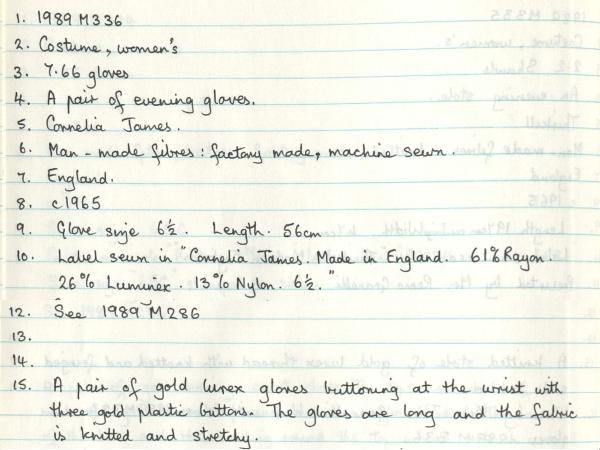 1. 1989 M336
2. Costume, women's
3. 7.66 gloves
4. A pair of evening gloves.
5. Cornelia James.
6. Man-made fibres: factory made, machine sewn.
7. England.
8. c1965
9. Glove size 6½. Length. 56cm
10. Label sewn in "Cornelia James. Made in England. 61% Rayon.
26% Luminex. 13% Nylon. 6½."
12. See 1989 M286
13.
14.
15. A pair of gold lurex gloves buttoning at the wrist with
three gold plastic buttons. The gloves are long and the fabric
is knitted and stretchy.